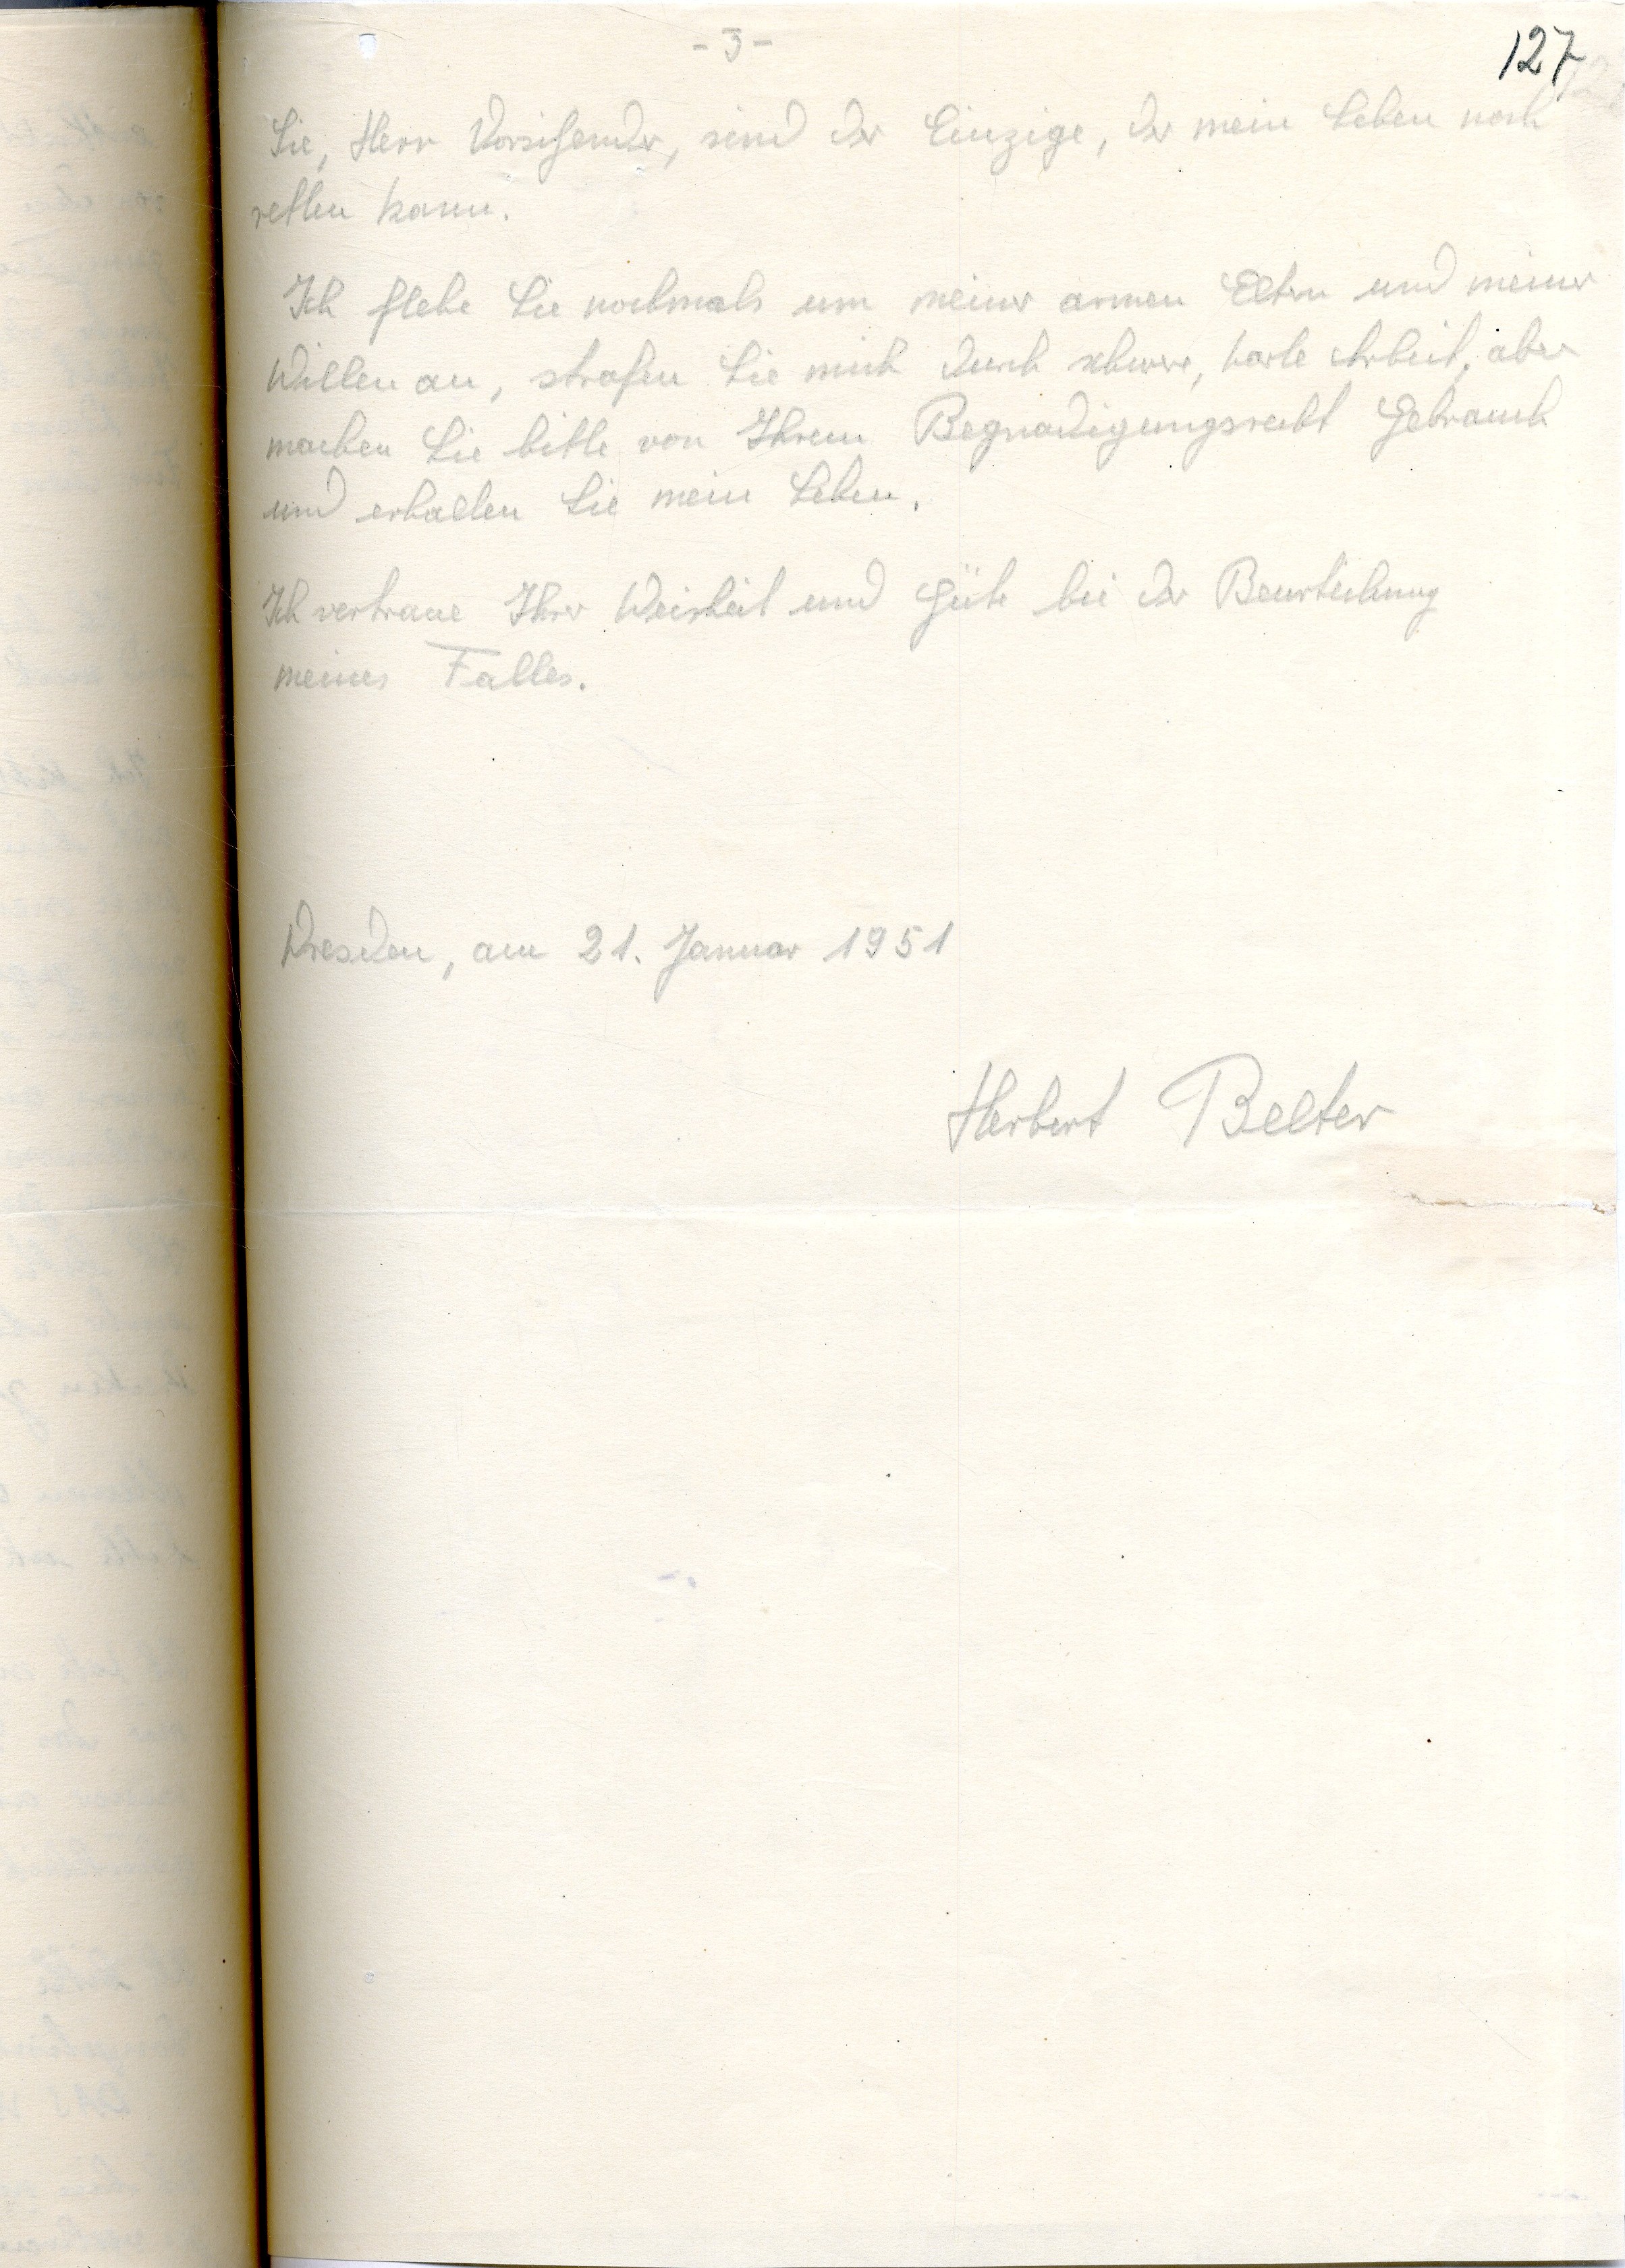 - 3 -
127
Sie, Herr Vorsitzender, sind der Einzige, der mein Leben noch
retten kann.
Ich flehe Sie nochmals um meiner armen Eltern und meiner
Willen an, strafen Sie mich durch schwere, harte Arbeit, aber
machen Sie bitte von Ihrem Begnadigungsrecht Gebrauch
und erhalten Sie mein Leben.
Ich vertraue Ihrer Weisheit und Güte bei der Beurteilung
meines Falles.
Dresden, am 21. Januar 1951
Herbert Belter